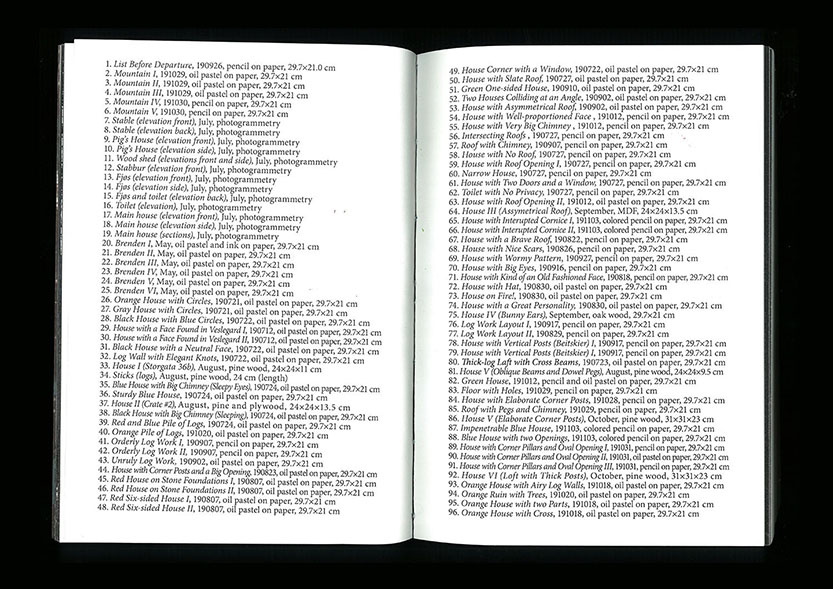 1. List Before Departure, 190926, pencil on paper, 29.7×21.0 cm
2. Mountain I, 191029, oil pastel on paper, 29.7×21 cm
3. Mountain II, 191029, oil pastel on paper, 29.7×21 cm
4. Mountain III, 191029, oil pastel on paper, 29.7×21 cm
5. Mountain IV, 191030, pencil on paper, 29.7×21 cm
6. Mountain V, 191030, pencil on paper, 29.7×21 cm
7. Stable (elevation front), July, photogrammetry
8. Stable (elevation back), July, photogrammetry
9. Pig's House (elevation front), July, photogrammetry
10. Pig's House (elevation side), July, photogrammetry
11. Wood shed (elevations front and side), July, photogrammetry
12. Stabbur (elevation front), July, photogrammetry
13. Fjøs (elevation front), July, photogrammetry
14. Fjøs (elevation side), July, photogrammetry
15. Fjøs and toilet (elevation back), July, photogrammetry
16. Toilet (elevation), July, photogrammetry
17. Main house (elevation front), July, photogrammetry
18. Main house (elevation side), July, photogrammetry
19. Main house (sections), July, photogrammetry
20. Brenden I, May, oil pastel and ink on paper, 29.7×21 cm
21. Brenden II, May, oil pastel on paper, 29.7×21 cm
22. Brenden III, May, oil pastel on paper, 29.7×21 cm
23. Brenden IV, May, oil pastel on paper, 29.7×21 cm
24. Brenden V, May, oil pastel on paper, 29.7×21 cm
25. Brenden VI, May, oil pastel on paper, 29.7×21 cm
26. Orange House with Circles, 190721, oil pastel on paper, 29.7×21 cm
27. Gray House with Circles, 190721, oil pastel on paper, 29.7×21 cm
28. Black House with Blue Circles, 190722, oil pastel on paper, 29.7×21 cm
29. House with a Face Found in Veslegard I, 190712, oil pastel on paper, 29.7×21 cm
30. House with a Face Found in Veslegard II, 190712, oil pastel on paper, 29.7×21 cm
31. Black House with a Neutral Face, 190722, oil pastel on paper, 29.7×21 cm
32. Log Wall with Elegant Knots, 190722, oil pastel on paper, 29.7×21 cm
33. House I (Storgata 36b), August, pine wood, 24×24×11 cm
34. Sticks (logs), August, pine wood, 24 cm (length)
35. Blue House with Big Chimney (Sleepy Eyes), 190724, oil pastel on paper, 29.7×21 cm
36. Sturdy Blue House, 190724, oil pastel on paper, 29.7×21 cm
37. House II (Crate #2), August, pine and plywood, 24×24×13.5 cm
38. Black House with Big Chimney (Sleeping), 190724, oil pastel on paper, 29.7×21 cm
39. Red and Blue Pile of Logs, 190724, oil pastel on paper, 29.7×21 cm
40. Orange Pile of Logs, 191020, oil pastel on paper, 29.7×21 cm
41. Orderly Log Work I, 190907, pencil on paper, 29.7×21 cm
42. Orderly Log Work II, 190907, pencil on paper, 29.7×21 cm
43. Unruly Log Work, 190902, oil pastel on paper, 29.7×21 cm
44. House with Corner Posts and a Big Opening, 190823, oil pastel on paper, 29.7×21 cm
45. Red House on Stone Foundations I, 190807, oil pastel on paper, 29.7×21 cm
46. Red House on Stone Foundations II, 190807, oil pastel on paper, 29.7×21 cm
47. Red Six-sided House I, 190807, oil pastel on paper, 29.7×21 cm
48. Red Six-sided House II, 190807, oil pastel on paper, 29.7×21 cm
49. House Corner with a Window, 190722, oil pastel on paper, 29.7×21 cm
50. House with Slate Roof, 190727, oil pastel on paper, 29.7×21 cm
51. Green One-sided House, 190910, oil pastel on paper, 29.7×21 cm
52. Two Houses Colliding at an Angle, 190902, oil pastel on paper, 29.7×21 cm
53. House with Asymmetrical Roof, 190902, oil pastel on paper, 29.7×21 cm
54. House with Well-proportioned Face , 191012, pencil on paper, 29.7×21 cm
55. House with Very Big Chimney , 191012, pencil on paper, 29.7×21 cm
56. Intersecting Roofs , 190727, pencil on paper, 29.7×21 cm
57. Roof with Chimney, 190907, pencil on paper, 29.7×21 cm
58. House with No Roof, 190727, pencil on paper, 29.7×21 cm
59. House with Roof Opening I, 190727, pencil on paper, 29.7×21 cm
60. Narrow House, 190727, pencil on paper, 29.7×21 cm
61. House with Two Doors and a Window, 190727, pencil on paper, 29.7×21 cm
62. Toilet with No Privacy, 190727, pencil on paper, 29.7×21 cm
63. House with Roof Opening II, 191012, pencil on paper, 29.7×21 cm
64. House III (Assymetrical Roof), September, MDF, 24×24×13.5 cm
65. House with Interupted Cornice I, 191103, colored pencil on paper, 29.7×21 cm
66. House with Interupted Cornice II, 191103, colored pencil on paper, 29.7×21 cm
67. House with a Brave Roof, 190822, pencil on paper, 29.7×21 cm
68. House with Nice Scars, 190826, pencil on paper, 29.7×21 cm
69. House with Wormy Pattern, 190927, pencil on paper, 29.7×21 cm
70. House with Big Eyes, 190916, pencil on paper, 29.7×21 cm
71. House with Kind of an Old Fashioned Face, 190818, pencil on paper, 29.7×21 cm
72. House with Hat, 190830, oil pastel on paper, 29.7×21 cm
73. House on Fire!, 190830, oil pastel on paper, 29.7×21 cm
74. House with a Great Personality, 190830, oil pastel on paper, 29.7×21 cm
75. House IV (Bunny Ears), September, oak wood, 29.7×21 cm
76. Log Work Layout I, 190917, pencil on paper, 29.7×21 cm
77. Log Work Layout II, 190829, pencil on paper, 29.7×21 cm
78. House with Vertical Posts (Beitskier) I, 190917, pencil on paper, 29.7×21 cm
79. House with Vertical Posts (Beitskier) I, 190917, pencil on paper, 29.7×21 cm
80. Thick-log Laft with Cross Beams, 190723, oil pastel on paper, 29.7×21 cm
81. House V (Oblique Beams and Dowel Pegs), August, pine wood, 24×24×9.5 cm
82. Green House, 191012, pencil and oil pastel on paper, 29.7×21 cm
83. Floor with Holes, 191029, pencil on paper, 29.7×21 cm
84. House with Elaborate Corner Posts, 191028, pencil on paper, 29.7×21 cm
85. Roof with Pegs and Chimney, 191029, pencil on paper, 29.7×21 cm
86. House V (Elaborate Corner Posts), October, pine wood, 31×31×23 cm
87. Impenetrable Blue House, 191103, colored pencil on paper, 29.7×21 cm
88. Blue House with two Openings, 191103, colored pencil on paper, 29.7×21 cm
89. House with Corner Pillars and Oval Opening I, 191031, pencil on paper, 29.7×21 cm
90. House with Corner Pillars and Oval Opening II, 191031, pencil on paper, 29.7×21 cm
91. House with Corner Pillars and Oval Opening III, 191031, pencil on paper, 29.7×21 cm
92. House VI (Loft with Thick Posts), October, pine wood, 31×31×23 cm
93. Orange House with Airy Log Walls, 191018, oil pastel on paper, 29.7×21 cm
94. Orange Ruin with Trees, 191020, oil pastel on paper, 29.7×21 cm
95. Orange House with two Parts, 191018, oil pastel on paper, 29.7×21 cm
96. Orange House with Cross, 191018, oil pastel on paper, 29.7×21 cm